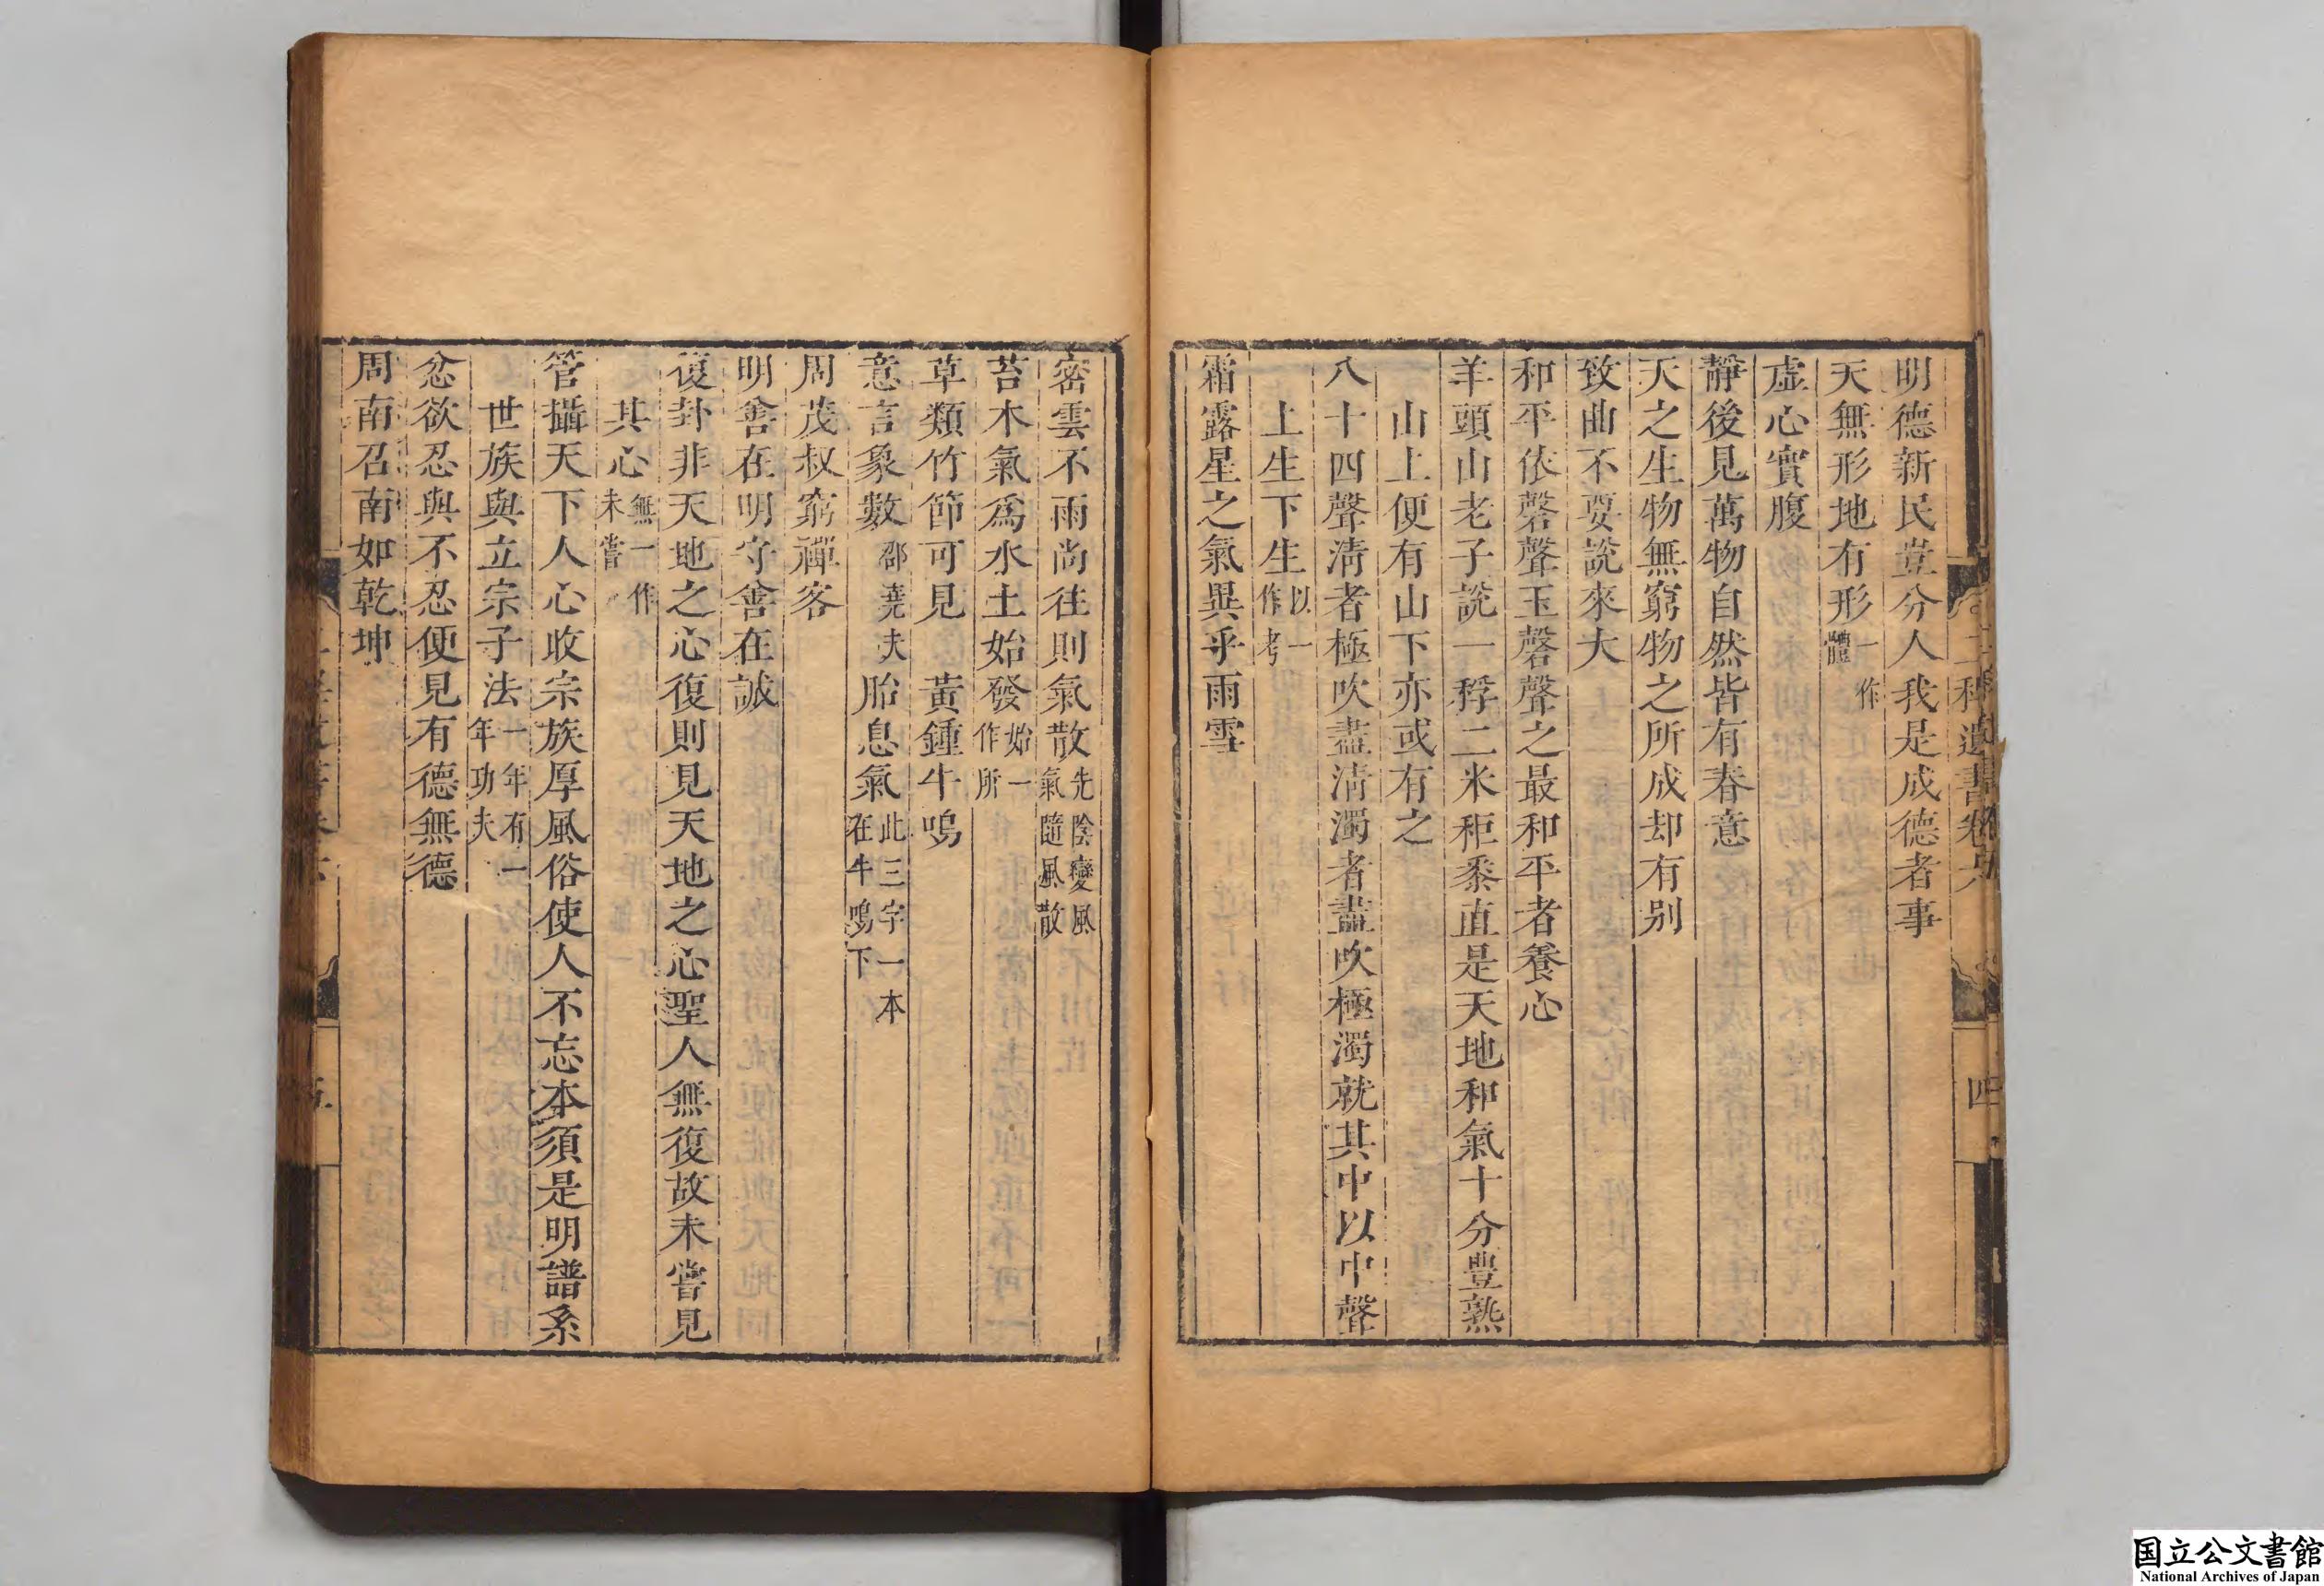 二程遺書卷六
四
明德新民豈分人我是成德者事
天無形地有形一作體
虛心實腹
靜後見萬物自然皆有春意
天之生物無窮物之所成却有别
致曲不要說來大
和平依磬聲玉磬聲之最和平者養心
羊頭山老子說一稃二米秬黍直是天地和氣十分豊熟
山上便有山下亦或有之
八十四聲淸者極吹盡淸濁者盡吹極濁就其中以中聲
上生下生以一作考
霜露星之氣異乎雨雪
密雲不雨尚往則氣散先陰變風氣隨風散
苔木氣爲水土始發始一作所
草類竹節可見　黃鍾牛鳴
意言象數邵堯夫胎息氣此三字一本在牛鳴下
周茂叔窮禪客
明善在明守善在誠
復卦非天地之心復則見天地之心聖人無復故未嘗見
其心無一作未嘗
管攝天下人心收宗族厚風俗使人不忘本須是明譜系
世族與立宗子法一年有一年功夫
忿欲忍與不忍便見有德無德
周南召南如乾坤
五
国立公文書館
National Archives of Japan